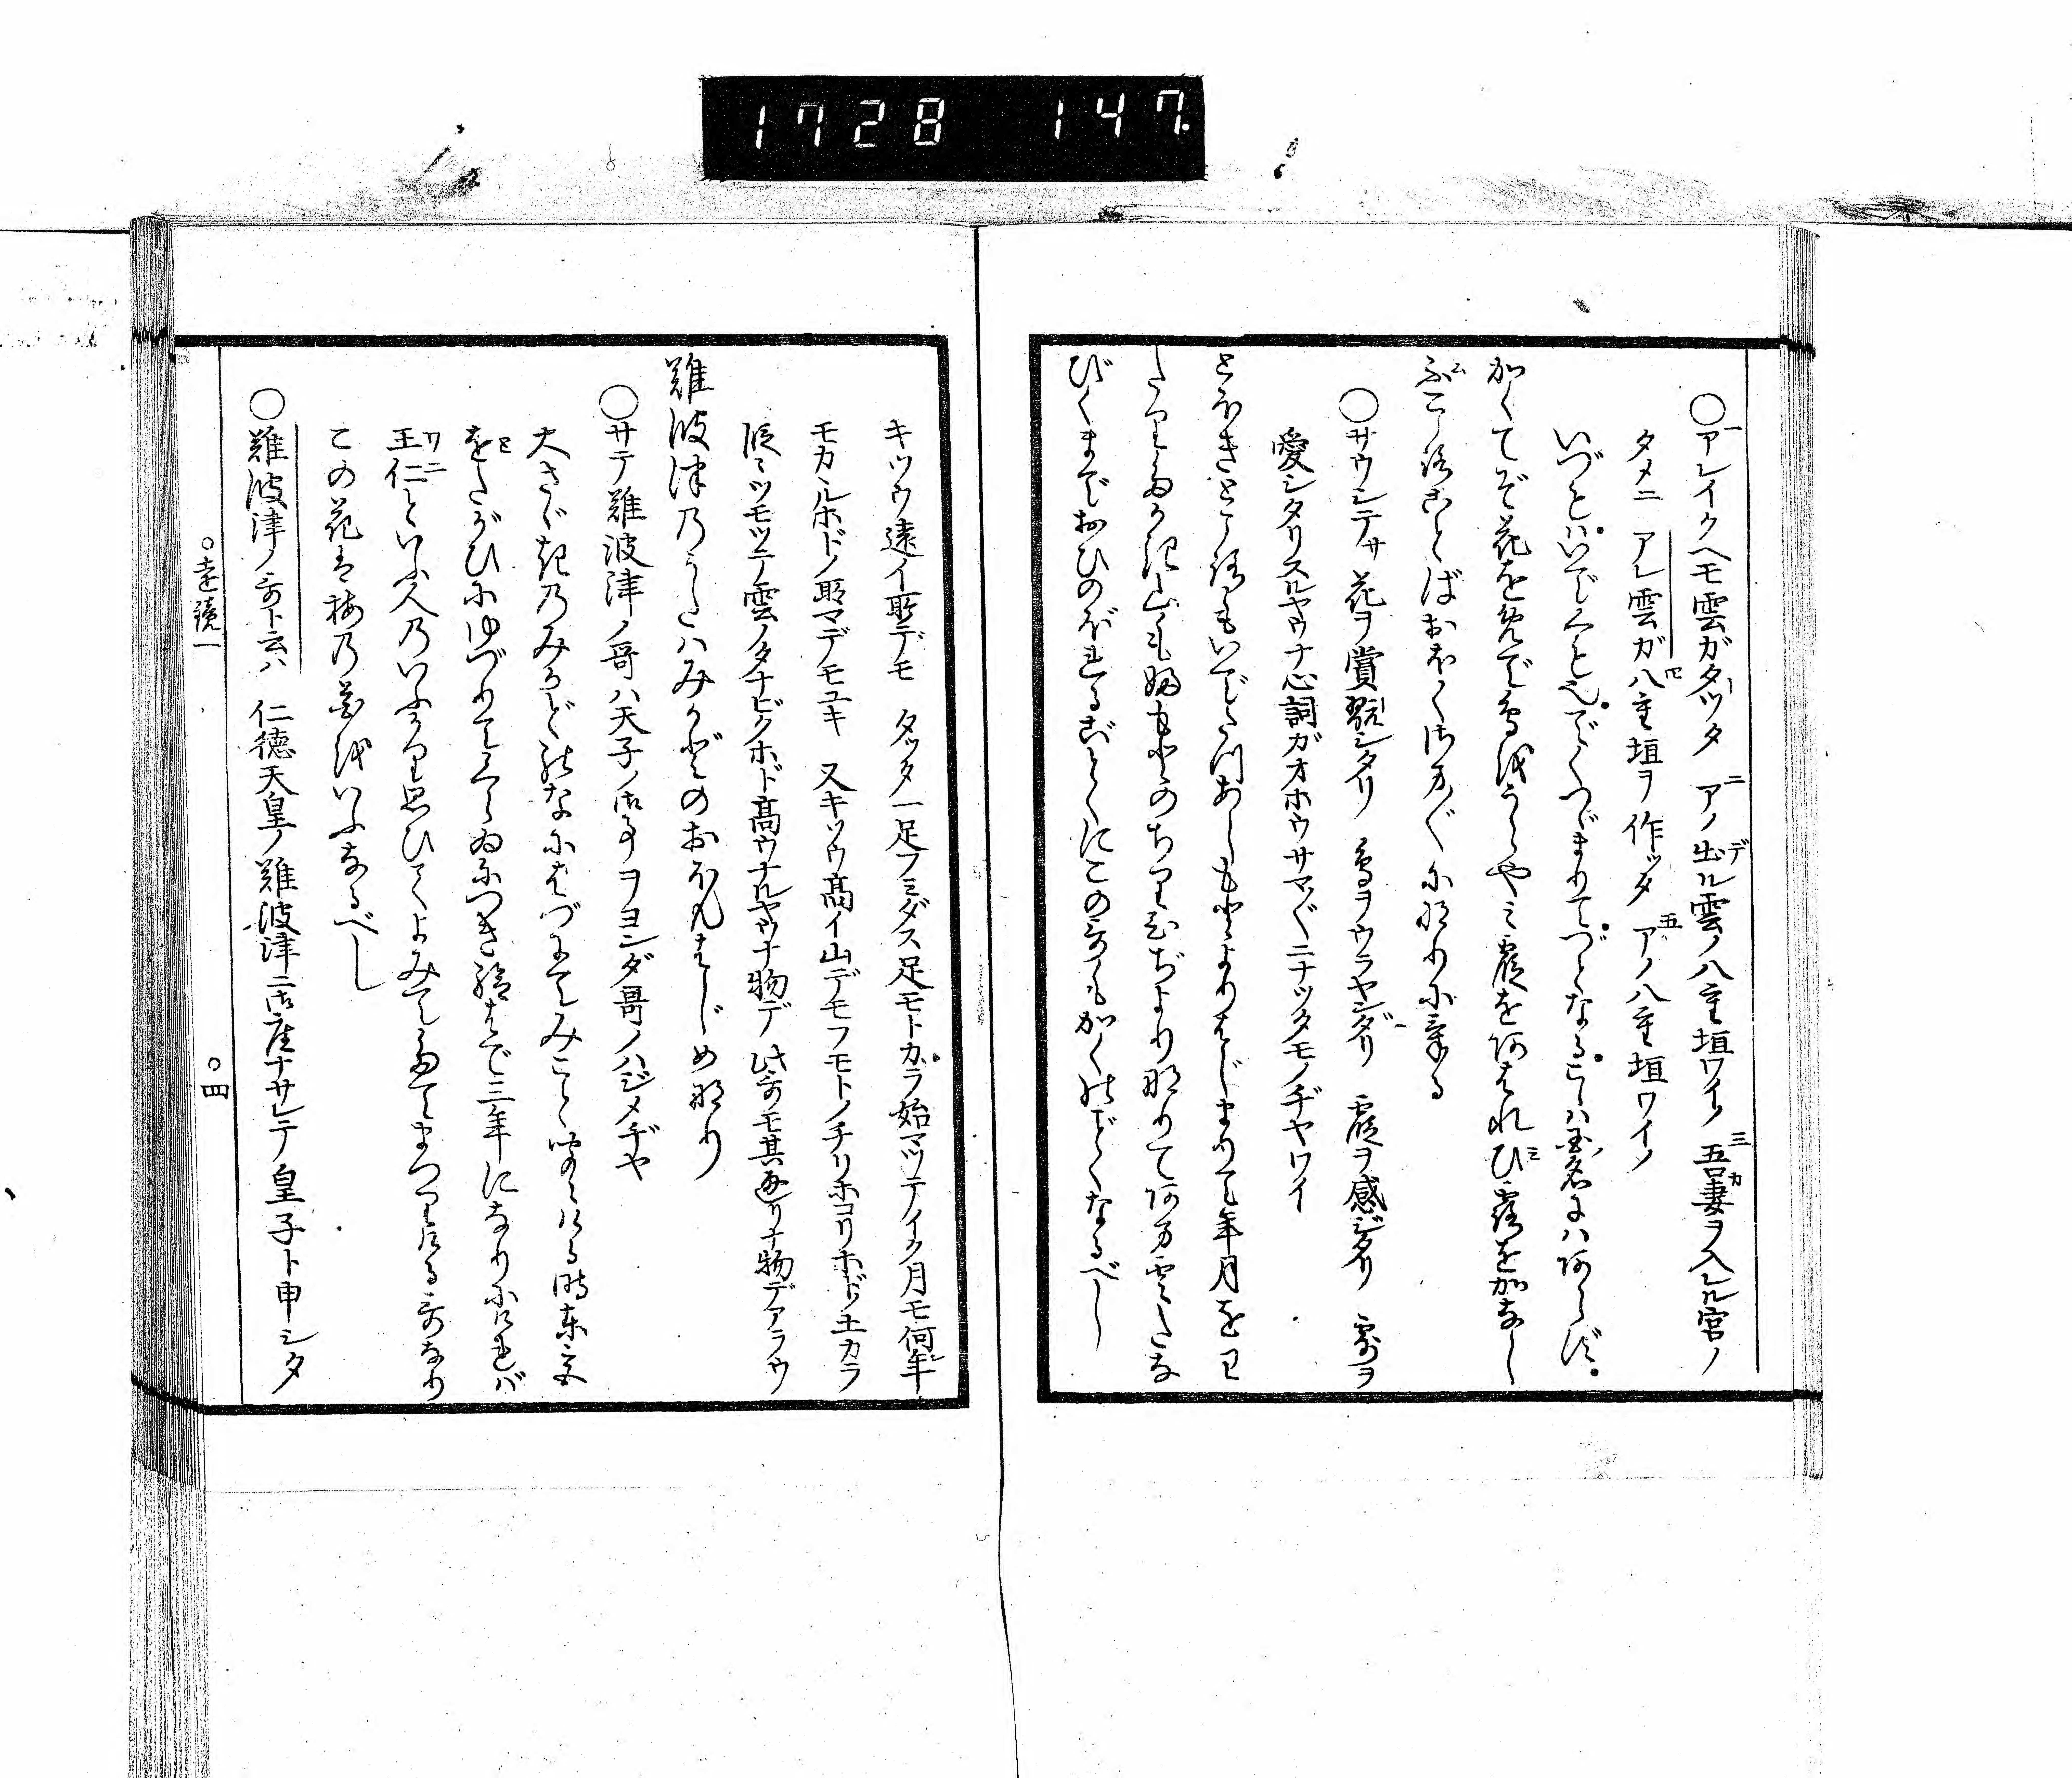 1728 147
○アレイクヘモ雲ガタツタ アノ出ル雲ノ八重垣ワイノ 吾妻ヲ入レル宮ノ
タメニ アレ雲ガ八重垣ヲ作ツタ アノ八重垣ワイノ
いづとハいでくを也でくつゞまりてづとなるこハ国名にハあらず
かくてぞ花をめで鳥をうらやミ霞をあはれひ露をかなし
ふこゝろことばおほくさま〴〵になりにける
○サウシテサ花ヲ賞翫シタリ 鳥ヲウラヤンダリ 霞ヲ感ジタリ 露ヲ
愛シタリスルヤウナ心詞ガオホウサマ〴〵ニナツタモノヂヤワイ
とほきところもいでたつあしもとよりはじまりて年月をわ
たりたかき山も麓のちりひぢよりなりてあま雲たな
びくまでおひのぼれるごとくにこの哥もかくのごとくなるべし
キツウ遠イ所デモ タツタ一足フミダス足モトカラ始マツテイク月モ何年
モカヽルホドノ所マデモユキ 又キツウ高イ山デモフモトノチリホコリホドノ土カラ
段々ツモツテ雲ノタナビクホド高ウナルヤウナ物デ 此哥モ其通リナ物デアラウ
難波津のうたハみかどのおほんはじめなり
○サテ難波津ノ哥ハ天子ノ御事ヲヨンダ哥ノハジメヂヤ
大さゞきのみかどのなにはづにてみこときこえける時東宮
をたがひにゆづりてくらゐにつき給はで三年になりにければ
王仁といふ人のいぶかり思ひてよみてたてまつりける哥なり
この花は梅の花をいふなるべし
○難波津ノ哥ト云ハ 仁徳天皇ノ難波津ニ御座ナサレテ皇子ト申シタ
○遠鏡一 ○四